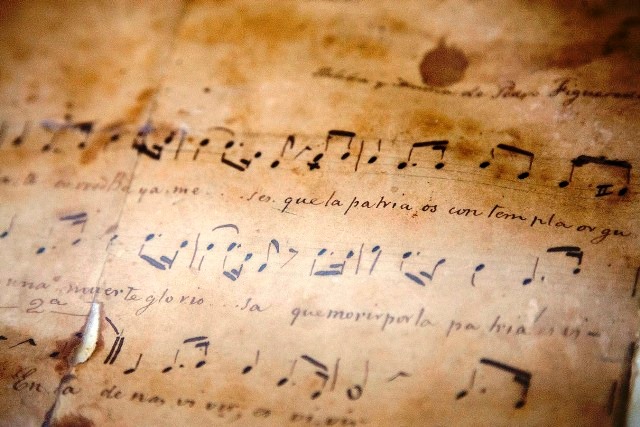 y Musica de Pedro Figueredo
corred Bayameses que la patria os contempla orgu
muerte glorio sa que morir por la patria es vi-
2ª
En ca denas vivir, es vivir